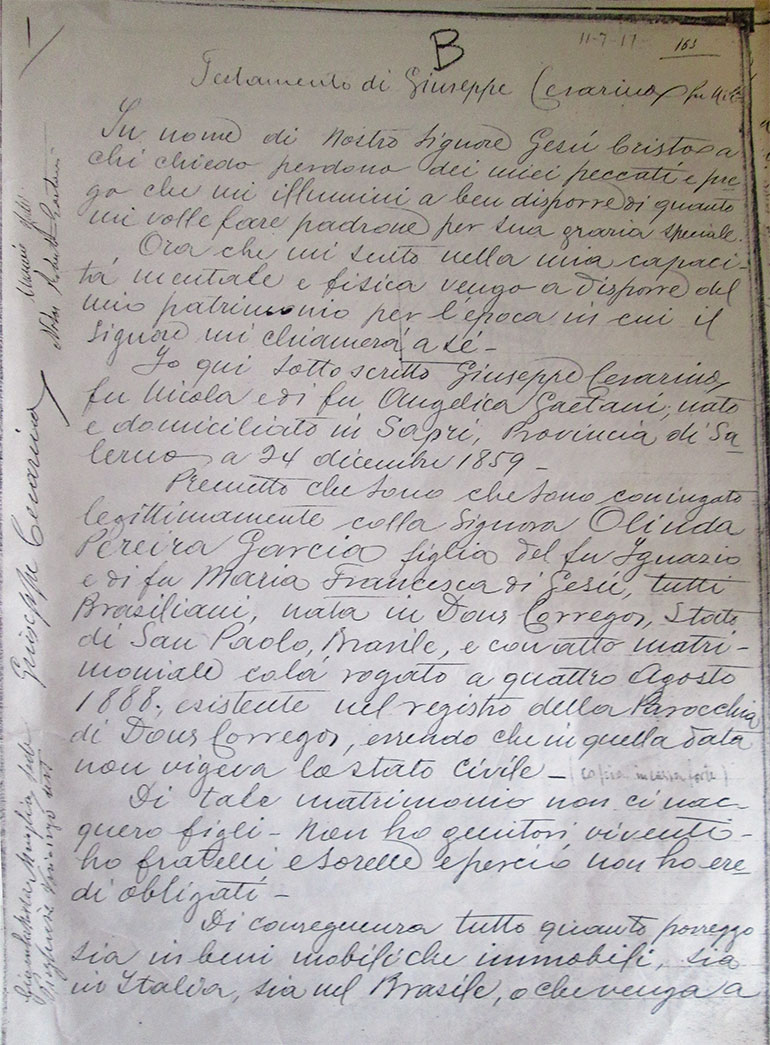 B
11-7-17
163
Testamento di Giuseppe Cesarino fu
In nome di Nostro Signore Gesú Cristo a
chi chiedo perdono dei miei peccati e pre
go che mi illumini a ben disporre di quanto
mi volle fare padrone per sua grazia speciale.
Ora che mi sento nella mia capaci-
tá mentale e fisica vengo a disporre del
mio patrimonio per l'época in cui il
Signore mi chiamerá a sé -
Io qui sottoscritto Giuseppe Cesarino,
fu Nicola e di fu Angelica Gaetani, nato
e domiciliato in Sapri, Provincia di Sa-
lerno a 24 dicembre 1859 -
Premetto che sono che sono coniugato
legittimamente colla Signora Olinda
Pereira Garcia figlia del fu Ignazio
e di fu Maria Francesca di Gesú, tutti
Brasiliani, nata in Dous Corregos, Stato
di San Paolo, Brasile, e con atto matri-
moniale colá rogato a quattro Agosto
1888, esistente nel registro della Parocchia
di Dous Corregos, essendo che in quella data
non vigeva lo stato civile - (copia in cassa forte)
Di tale matrimonio non ci nac-
quero figli - Non ho genitori viventi -
ho fratelli e sorelle e perció non ho ere
di obligati -
Di conseguenza tutto quanto posseggo
sia in beni mobili che immobili, sia
in Italia, sia nel Brasile, o che venga a
Giuseppe Cesarino